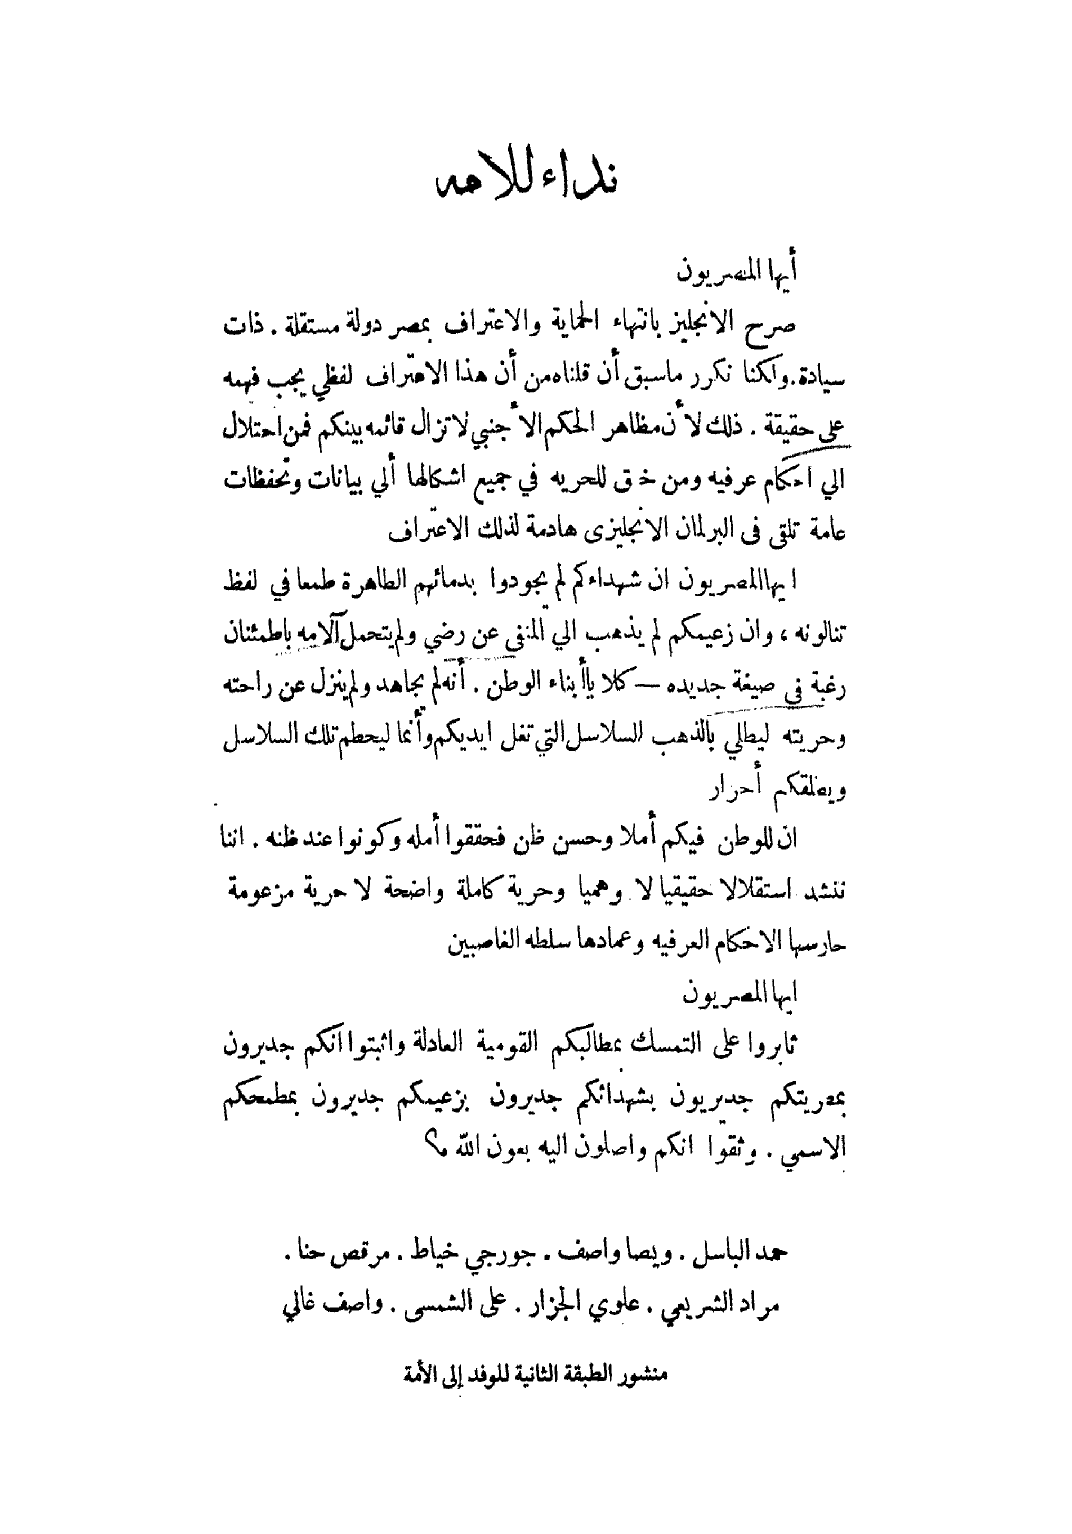 نداء للامه
أيها المصريون
صرح الانجليز بانتهاء الحماية والاعتراف بمصر دولة مستقلة . ذات
سيادة . ولكنا نكرر ماسبق أن قلناه من أن هذا الاعتراف لفظي يجب فهمه
على حقيقة . ذلك لأن مظاهر الحكم الأجنبي لا تزال قائمه بينكم فمن احتلال
الي احكام عرفيه ومن خنق للحريه في جميع اشكالها ألي بيانات وتحفظات
عامة تلقى فى البرلمان الانجليزى هادمة لذلك الاعتراف
ايها المصريون ان شهداءكم لم يجودوا بدمائهم الطاهرة طمعا في لفظ
تنالونه ، وان زعيمكم لم يذهب الي المنفى عن رضي ولم يتحمل آلامه باطمئنان
رغبة في صيغة جديده — كلا ياأبناء الوطن . أنه لم يجاهد ولم ينزل عن راحته
وحريته ليطلي بالذهب السلاسل التي تغل ايديكم وأنما ليحطم تلك السلاسل
ويطلقكم أحرار
ان للوطن فيكم أملا وحسن ظن فحققوا أمله وكونوا عند ظنه . اننا
ننشد استقلالا حقيقيا لا وهميا وحرية كاملة واضحة لا حرية مزعومة
حارسها الاحكام العرفيه وعمادها سلطه الغاصبين
ايها المصريون
ثابروا على التمسك بمطالبكم القومية العادلة واثبتوا انكم جديرون
بمصريتكم جديريون بشهدائكم جديرون بزعيمكم جديرون بمطمحكم
الاسمي . وثقوا انكم واصلون اليه بعون الله
حمد الباسل . ويصا واصف . جورجي خياط . مرقص حنا .
مراد الشريعي . علوي الجزار . على الشمسى . واصف غالي
منشور الطبقة الثانية للوفد إلى الأمة